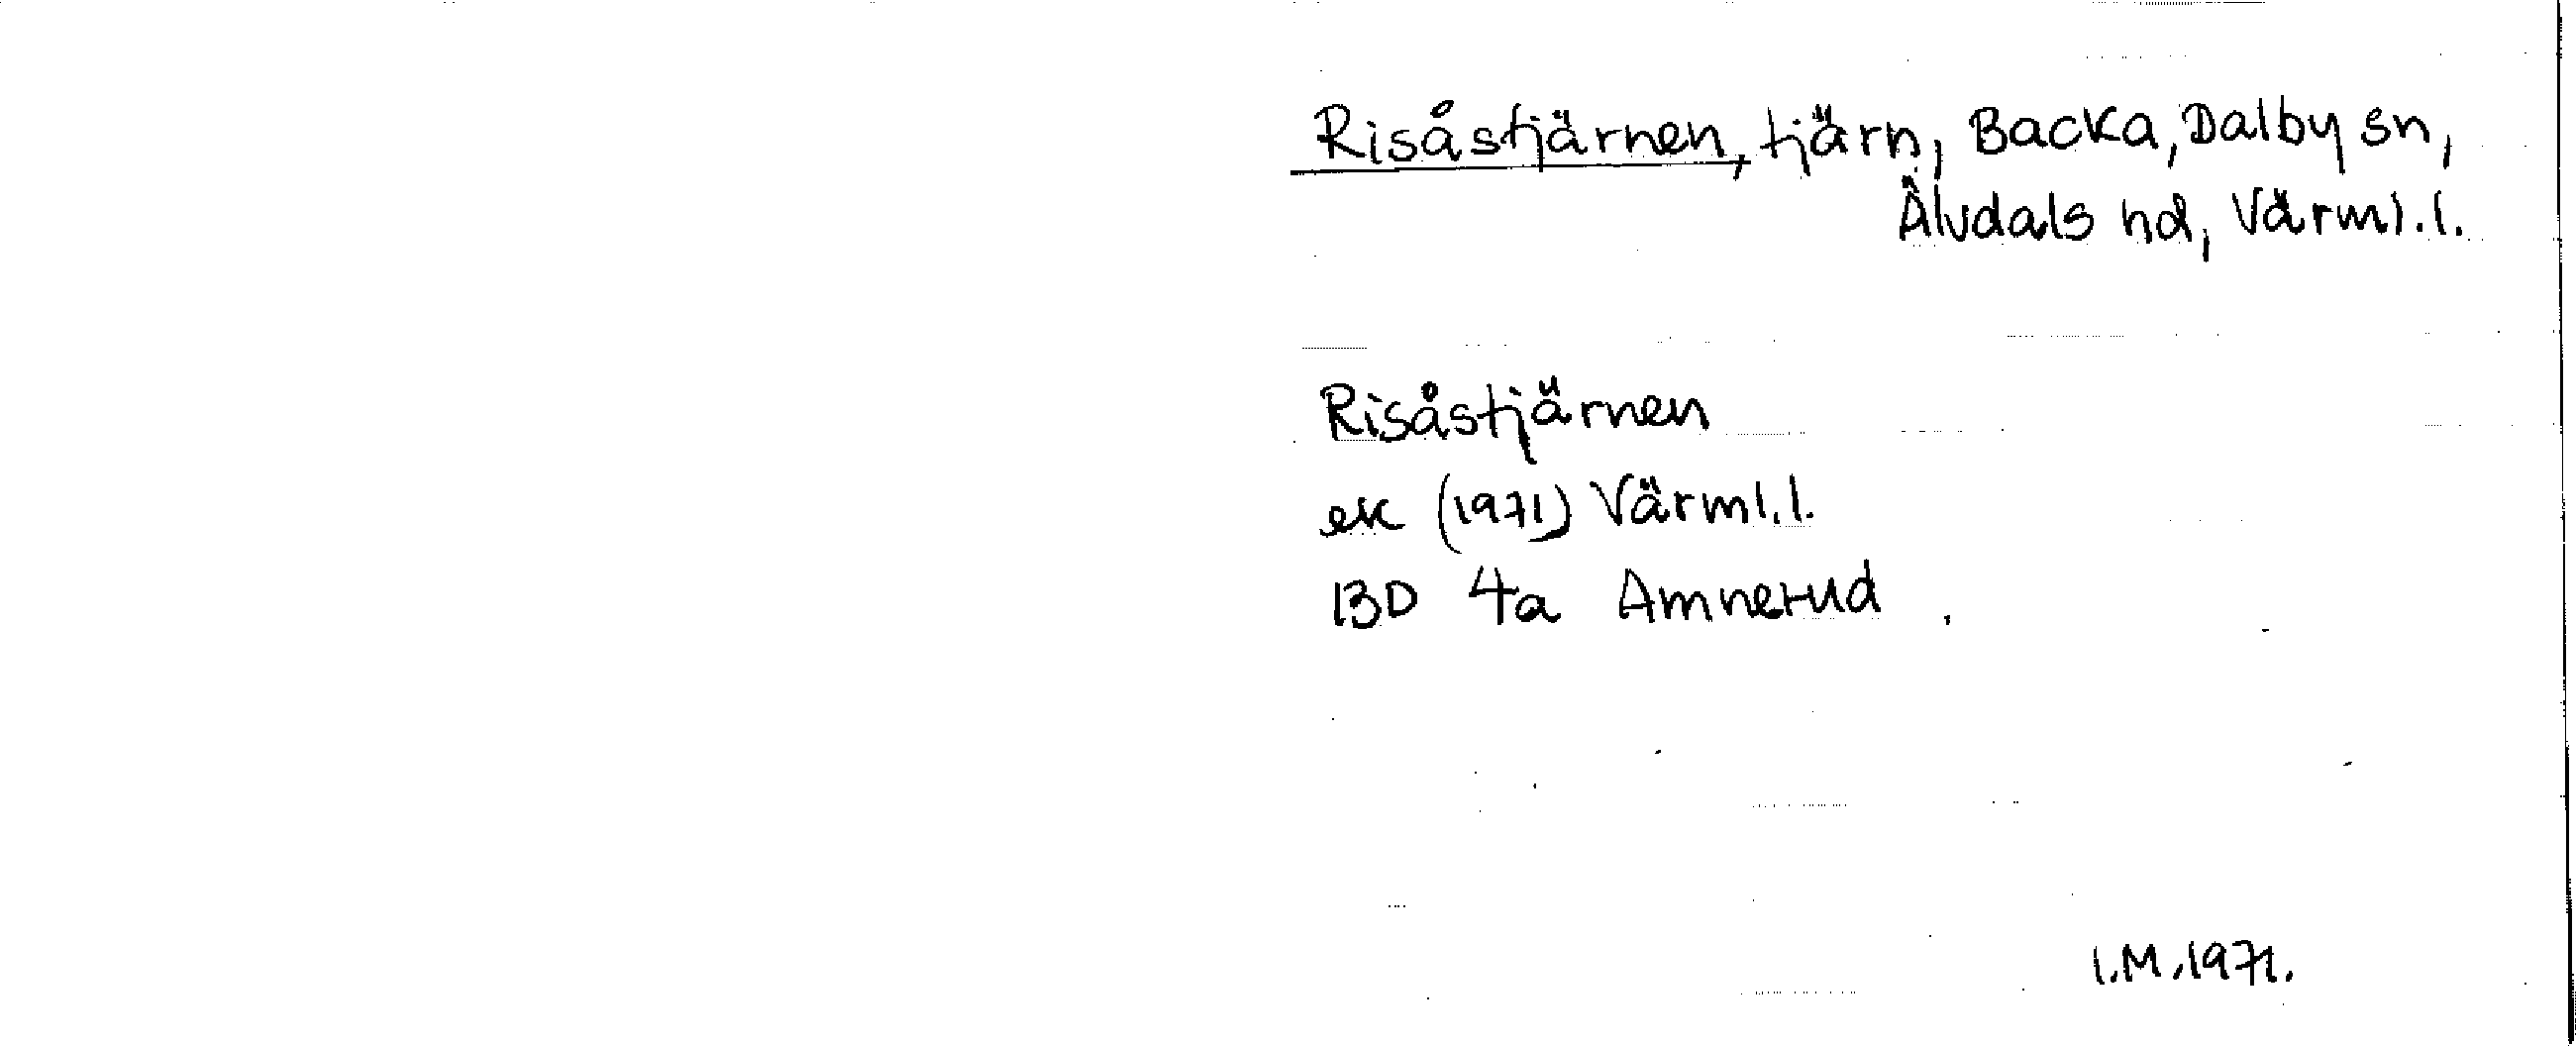 Risåstjärnen, tjärn, Backa, Dalby sn,
Älvdals hd, Värml. l.
Risåstjärnen
ek (1971) Värml. l.
13D 4a Amnerud
I.M. 1971.